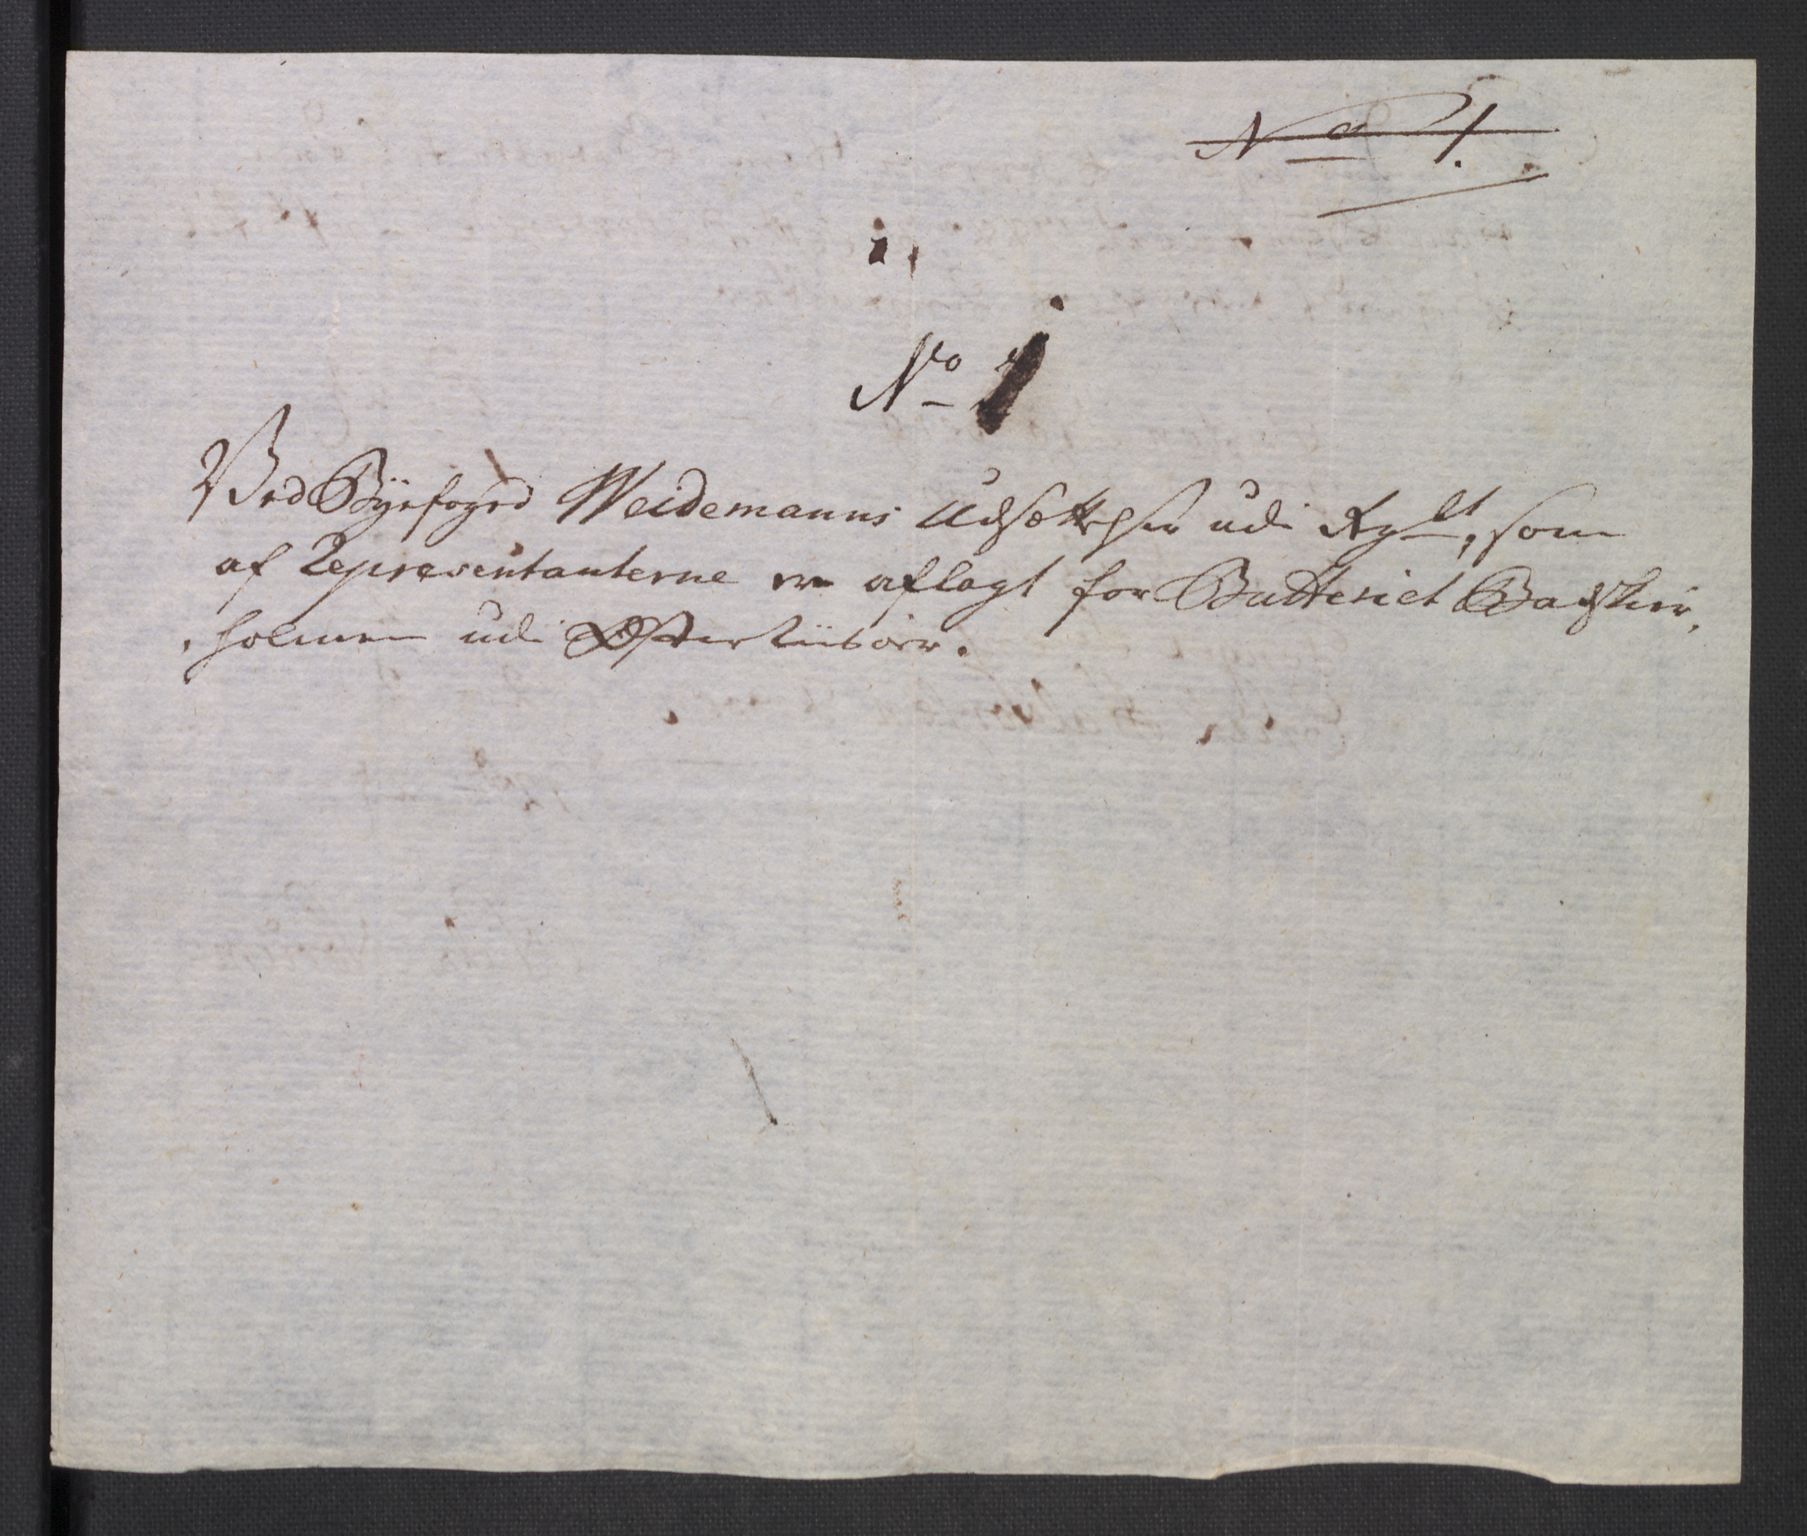 No 1.
No 1
Ved Byefoged Weidemanns Udsættelser udi Rgn, som
af Representanterne er aflagt for Batteriet Badskier,
holmen udi Øster Riisøer.